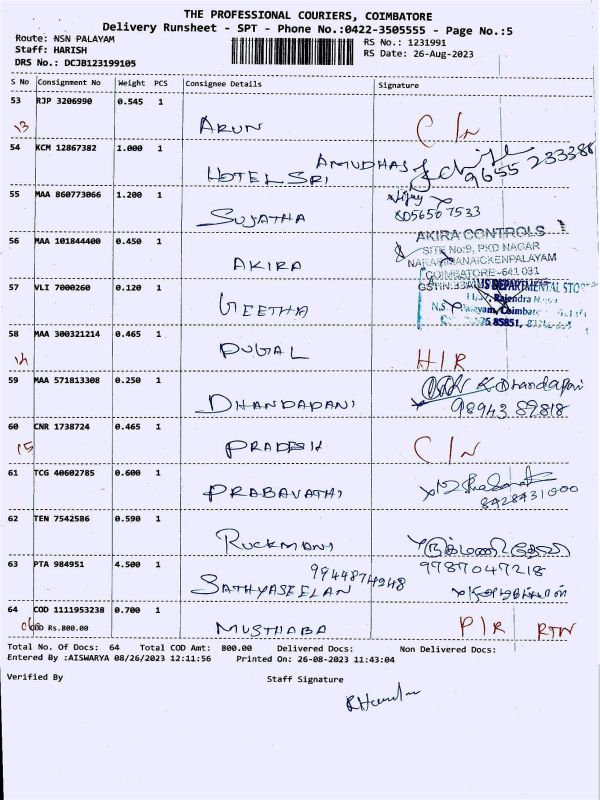 THE PROFESSIONAL COURIERS, COIMBATORE
Delivery Runsheet - SPT - Phone No.:0422-3505555 - Page No.:5
Route: NSN PALAYAM
RS No.: 1231991
Staff: HARISH
RS Date: 26-Aug-2023
DRS No.: DCJB123199105
S No Consignment No Weight PCS Consignee Details Signature
53 RJP 3206990 0.545 1
13 ARUN C/N
54 KCM 12867382 1.000 1
HOTEL SRI AMUDHAS 9655 233388
55 MAA 860773066 1.200 1
SUJATHA Vijay 8056507533
56 MAA 101844400 0.450 1
AKIRA
AKIRA CONTROLS
SITE No:9, PKD NAGAR
NARASIMANAICKENPALAYAM
COIMBATORE-641 031
57 VLI 7000260 0.120 1
GEETHA
DEPARTMENTAL STORE
Rajendra
58 MAA 300321214 0.465 1
14 DUGAL H/R
59 MAA 571813308 0.250 1
DHANDAPANI K Dhandapani
98943 89818
60 CNR 1738724 0.465 1
15 PRADESH C/N
61 TCG 40602785 0.600 1
PRABAVATHI 8428431000
62 TEN 7542586 0.590 1
RUCKMANI
63 PTA 984951 4.500 1
9787047218
9944874948
SATHYASEELAN
64 COD 1111953238 0.700 1
COD Rs.800.00
MUSTHABA P/R RTN
Total No. Of Docs: 64 Total COD Amt: 800.00 Delivered Docs: Non Delivered Docs:
Entered By :AISWARYA 08/26/2023 12:11:56 Printed On: 26-08-2023 11:43:04
Verified By Staff Signature